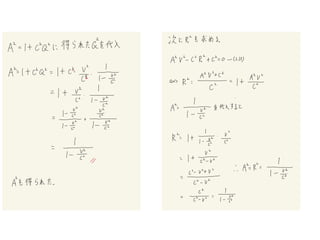 A² = 1 + C²Q² に 得られた Q² を代入
A² = 1 + C²Q² = 1 + C² · V²/C⁴ · 1/(1 - V²/C²)
= 1 + V²/C² · 1/(1 - V²/C²)
= (1 - V²/C²)/(1 - V²/C²) + (V²/C²)/(1 - V²/C²)
= 1/(1 - V²/C²)
A² を得られた.
次に R² を求める
A²V² - C²R² + C² = 0
⇔ R² = (A²V² + C²)/C² = 1 + A²V²/C²
A² = 1/(1 - V²/C²) を代入すると
R² = 1 + 1/(1 - V²/C²) · V²/C²
= 1 + V²/(C² - V²)
= (C² - V² + V²)/(C² - V²)
= C²/(C² - V²) = 1/(1 - V²/C²)
∴ A² = R² = 1/(1 - V²/C²)